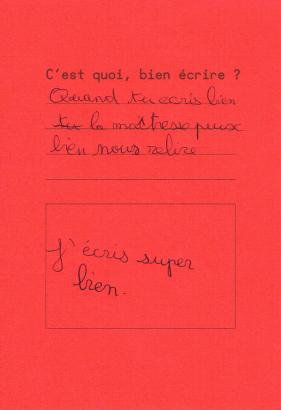 C'est quoi, bien écrire ?
Quand tu ecris bien
tu la maîtresse peux
bien nous relire
J'écris super
bien.